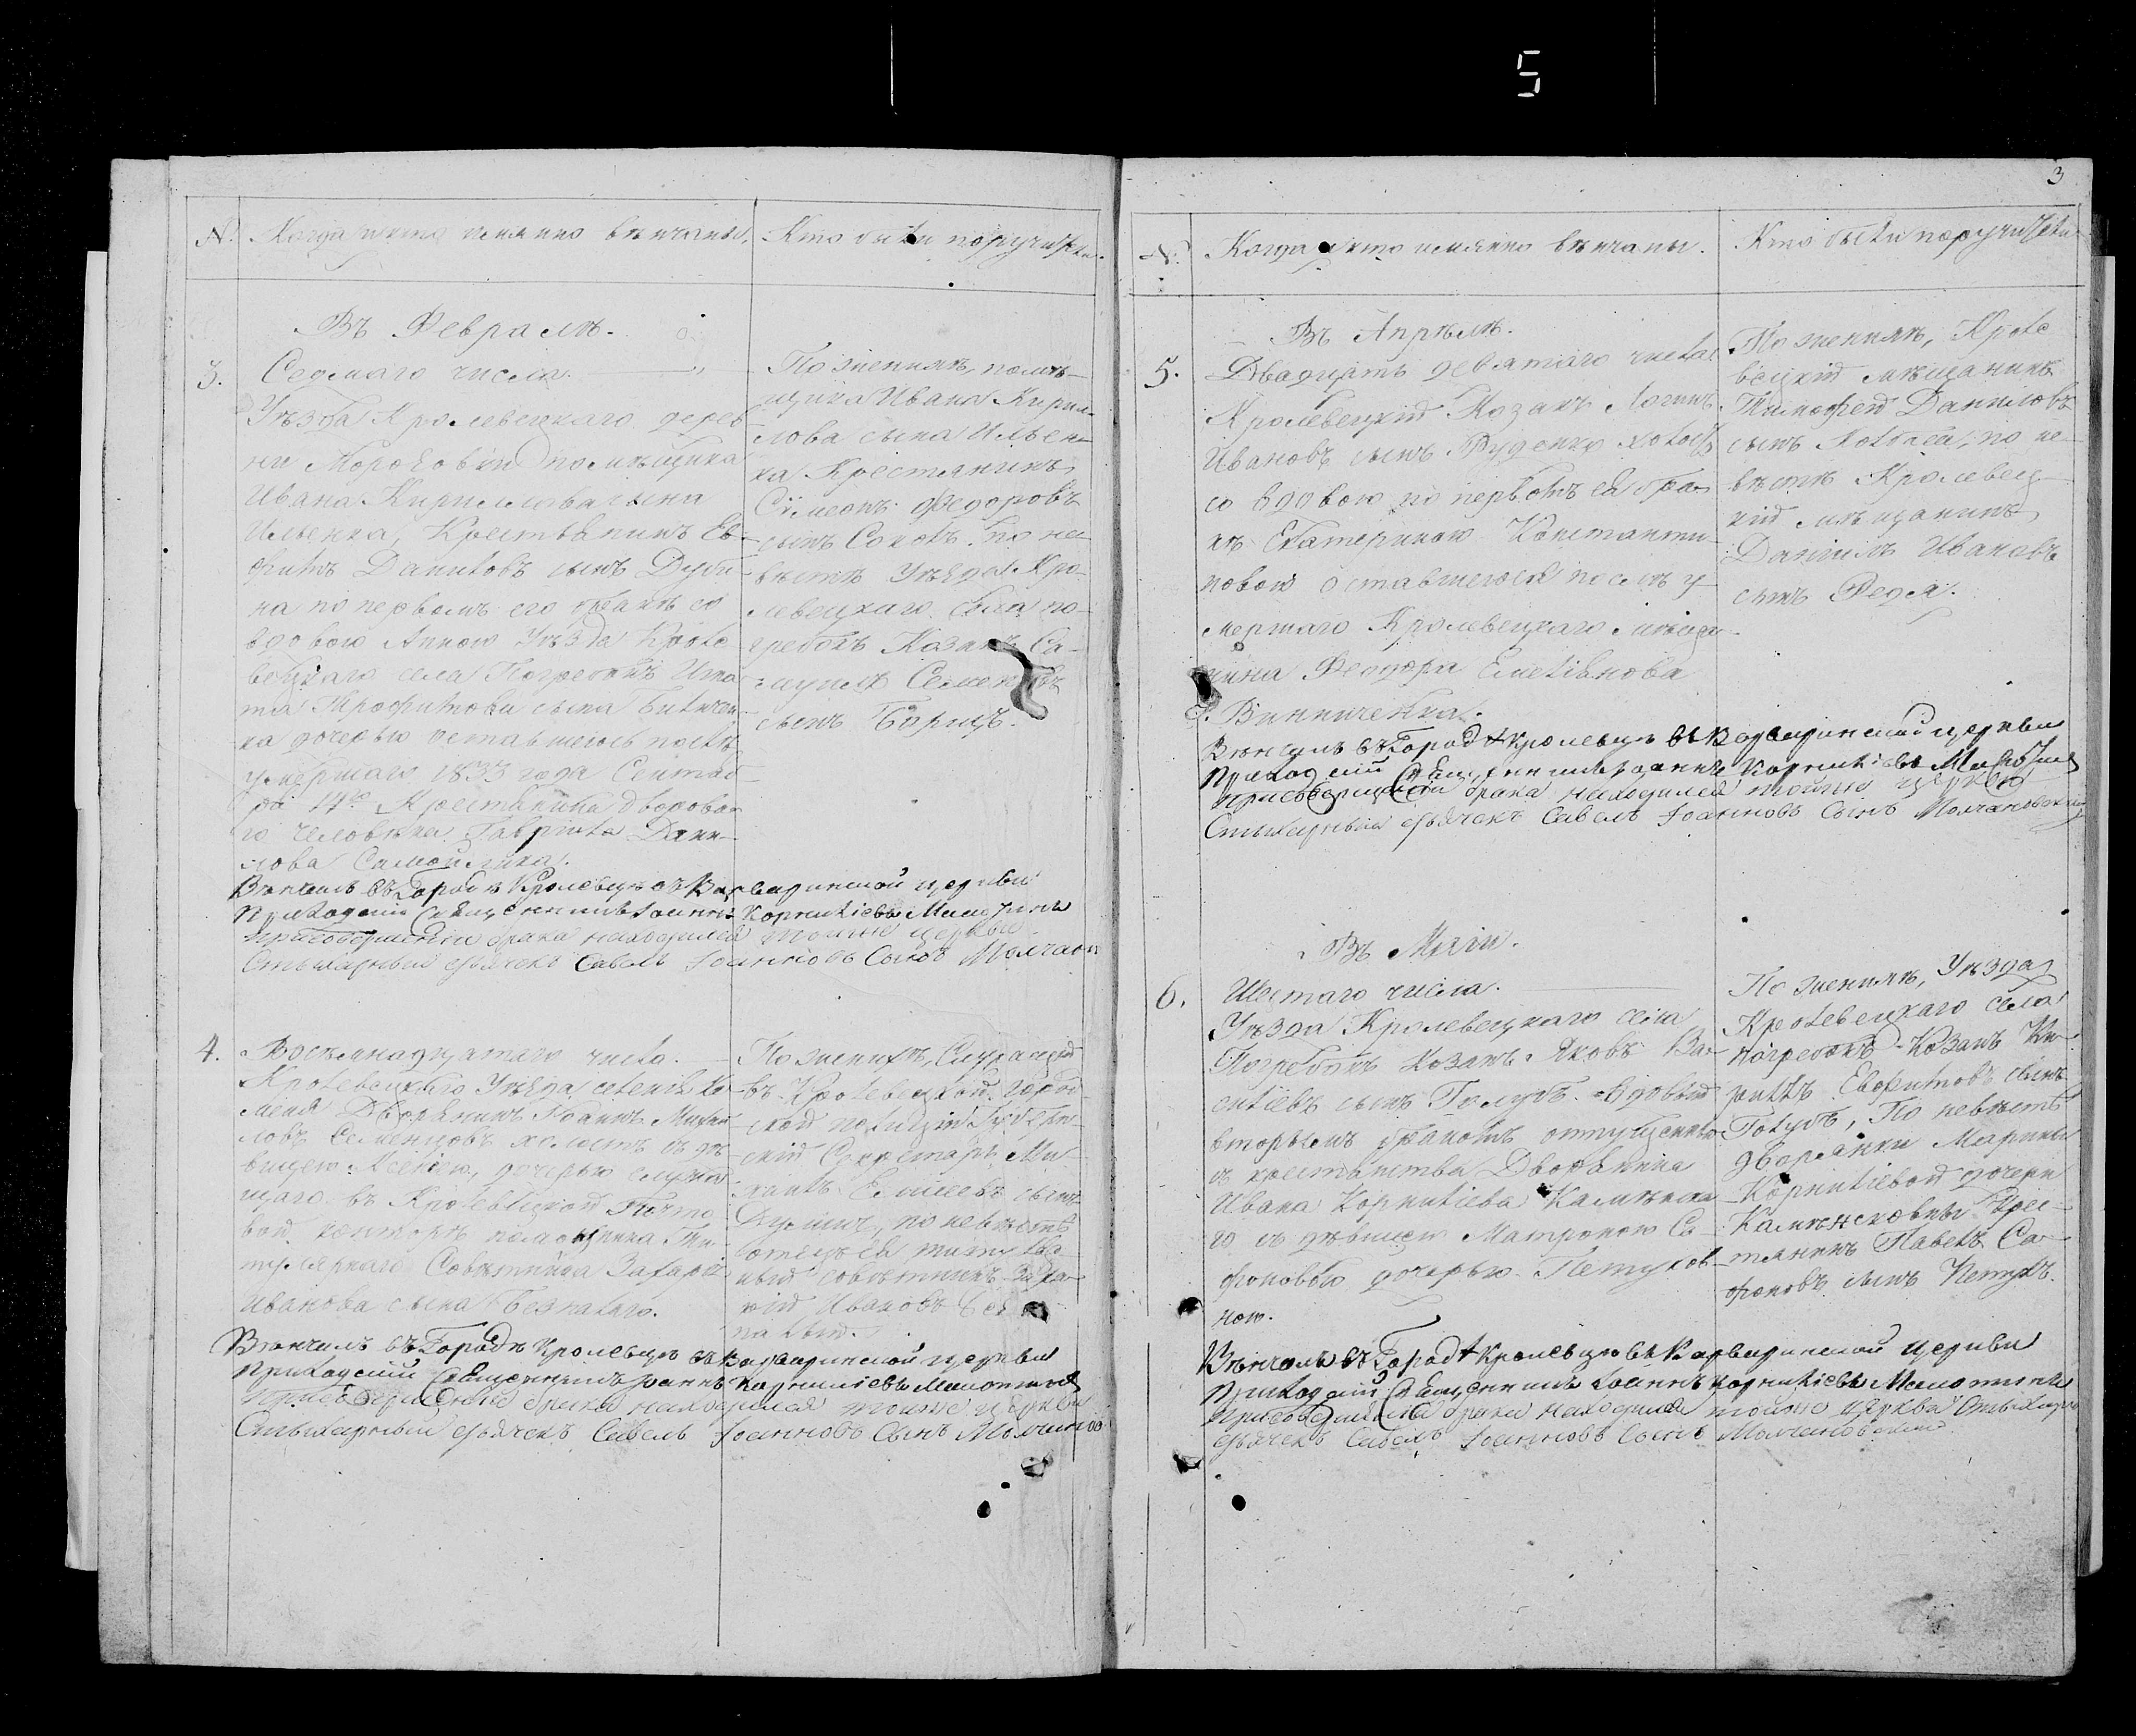 5
№. Когда и кто именно вѣнчаны. Кто были поручители.
Въ Февралѣ.
3. Седмаго числа.
Уѣзда Кролевецкаго дерев
ни помѣщика
Ивана Кириллова сына
Ильенка, Крестьянинъ Ев-
фимъ Даниловъ сынъ
на по первомъ его бракѣ со
вдовою Анною Уѣзда Кроле
вецкаго села Погребокъ Игна
та Трофимова сына
ка дочерью оставшеюсь послѣ
умершаго 1833 года Сентяб
ря Крестьянина дворова
го человѣка Гавріила Дани-
лова
Вѣнчалъ въ Городѣ Кролевцѣ въ Варваринской церкви
Приходскій Священникъ Іоаннъ Корниліевъ
При совершеніи брака находился тойже церкви
Стихарный дьячекъ Савелъ Іоанновъ Сынъ
По женихѣ, помѣ-
щика Ивана Кирил-
лова сына Ильен-
ка Крестянинъ
Сѵмеонъ Федоровъ
сынъ Соколъ. по не-
вѣстѣ Уѣзда Кро-
левецкаго села По-
гребокъ Козакъ Са-
муилъ Семеновъ
сынъ Борищъ.
4. Восемнадцатаго числа.
Кролевецкаго Уѣзда селенія Ка
меня Дворянинъ Іоаннъ Михай
ловъ Семенцовъ холостъ съ дѣ
вицею Ксеніею, дочерью служа
щаго въ Кролевецкой Почто
вой конторѣ помощника Ти-
тулярнаго Совѣтника Захарія
Иванова сына Безпалаго.
Вѣнчалъ въ Городѣ Кролевцѣ въ Варваринской церкви
Приходскій Священникъ Іоаннъ Корниліевъ
При совершеніи брака находился тойже церкви
Стихарный дьячекъ Савелъ Іоанновъ Сынъ
По женихѣ, Служащій
въ Кролевецкой Город
ской полиціи Губерн-
скій Секретарь Ми-
хаилъ Елисеевъ сынъ
по невѣстѣ
отецъ ея титуляр
ный совѣтникъ Заха-
рій Ивановъ Без
палый.
3
№. Когда и кто именно вѣнчаны. Кто были поручители
Въ Апрѣлѣ.
5. Двадцать девятаго числа
Кролевецкій Козакъ Логинъ
Ивановъ сынъ Руденко холостъ
со вдовою по первомъ ея бра
кѣ Екатериною Константи-
новою оставшеюся послѣ у-
мершаго Кролевецкаго мѣща-
нина Феодора Емеліанова
Винниченка.
Вѣнчалъ въ Городѣ Кролевцѣ въ Варваринской церкви
Приходскій Священникъ Іоаннъ Корниліевъ
При совершеніи брака находился тойже церкви
Стихарный дьячекъ Савелъ Іоанновъ Сынъ Молчановскій
По женихѣ, Кроле
вецкій мѣщанинъ
Тимофей Даниловъ
сынъ по не-
вѣстѣ Кролевец-
кій мѣщанинъ
Даніилъ Ивановъ
сынъ Редя.
Въ Маіи.
6. Шестаго числа.
Уѣзда Кролевецкаго села
Погребокъ Козакъ Яковъ Ва-
силіевъ сынъ Голубъ вдовый
вторымъ бракомъ отпущенною
съ крестьянства Дворянина
Ивана Корниліева Каменска
го съ дѣвицею Матроною Са-
фоновою дочерью Петухов-
ною.
Вѣнчалъ въ Городѣ Кролевцѣ въ Варваринской церкви
Приходскій Священникъ Іоаннъ Корниліевъ
При совершеніи брака находился тойже церкви Стихарный
дьячекъ Савелъ Іоанновъ Сынъ Молчановскій
По женихѣ, Уѣзда
Кролевецкаго села
Погребокъ Козакъ Ки-
рилъ Евфимовъ сынъ
Голубъ, По невѣстѣ
дворянки Марины
Корниліевой дочери
Каменсковны Крес-
тянинъ Павелъ Са-
фоновъ сынъ Петухъ.